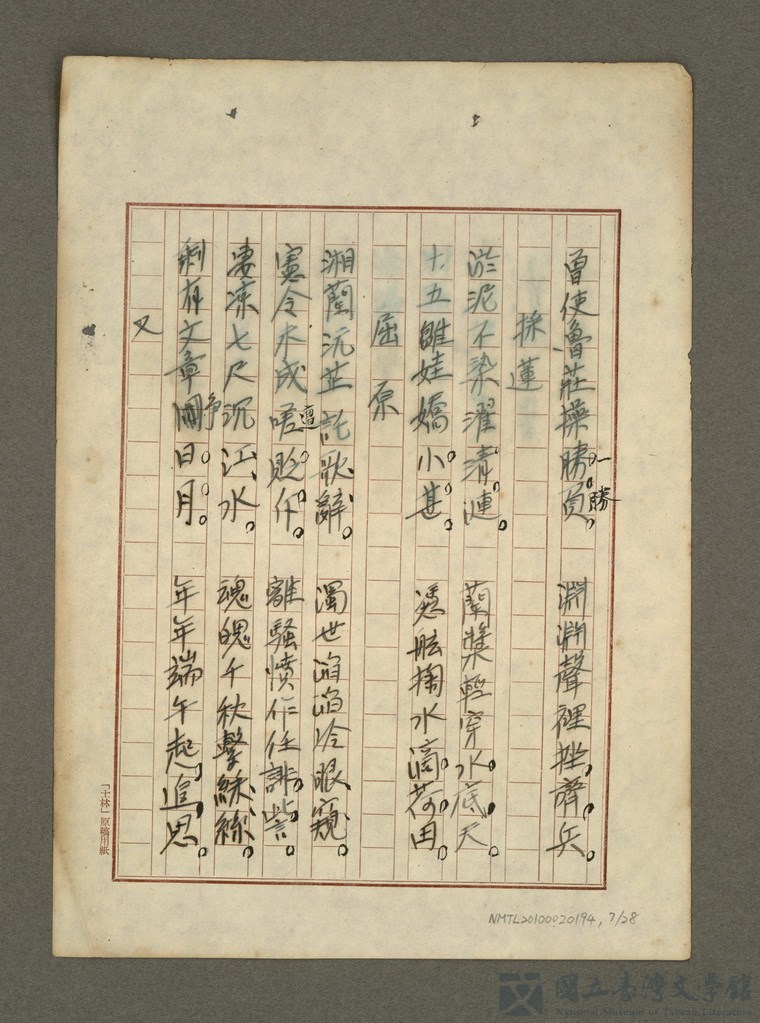 曾使魯莊操勝負。 淵淵聲裡挫齊兵。
一勝
採蓮
淤泥不染濯清漣。 蘭槳輕穿水底天。
十五雛娃嬌小甚。 憑舷掬水滴荷田。
屈原
湘蘭沅芷託歌辭。 濁世滔滔冷眼窺。
憲令未成遭貶斥。 離騷憤作任誹訾。
凄凉七尺沉江水。 魂魄千秋繫綵絲。
剩有文章爭日月。 年年端午起追思。
又
「士林」原稿用紙
NMTL20100020194, 7/28
國立臺灣文學館
National Museum of Taiwan Literature